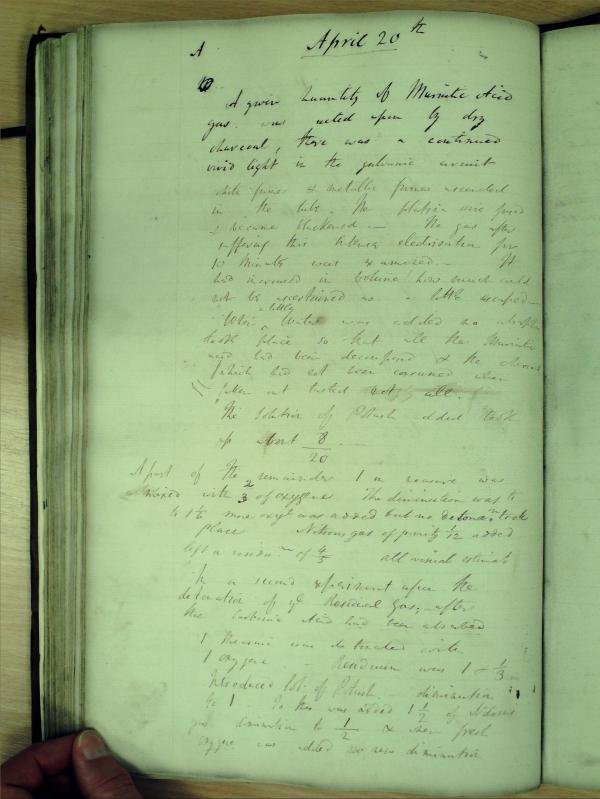 A April 20th
A given Quantity of Muriatic Acid
gas was acted upon by dry
charcoal, there was a continued
vivid light in the galvanic circuit
white fumes & metallic fumes ascended
in the tube. The platina wire fused
& became blackened — The gas after
suffering this intense electrisation for
10 Minutes was examined — It
had increased in volume how much could
not be ascertained as a little escaped —
When a little Water was added no absorption
took place so that all the Muriatic
acid had been decomposed & the charcoal
which had not been consumed when
taken out tasted not at all.
The Solution of Potash added took
up about 8/20 —
A part of the remainder 1 in measure was
Mixed with 3 of oxygene The diminution was to
more oxyg was added but no detonan took
place Nitrous gas of purity 1/12 added
left a residm of 4/5 all visual estimate
In a second experiment upon the
detonation of ye Residual gas, after
the Carbonic Acid had been absorbed
1 Measure was detonated with
1 oxygene — Residuum was 1 - 1/3
Introduced Sol: of Potash — diminution
to 1 — To this was added 1 1/2 of Nitrous
gas diminution to 1/2 & when fresh
oxygene was added no new diminution